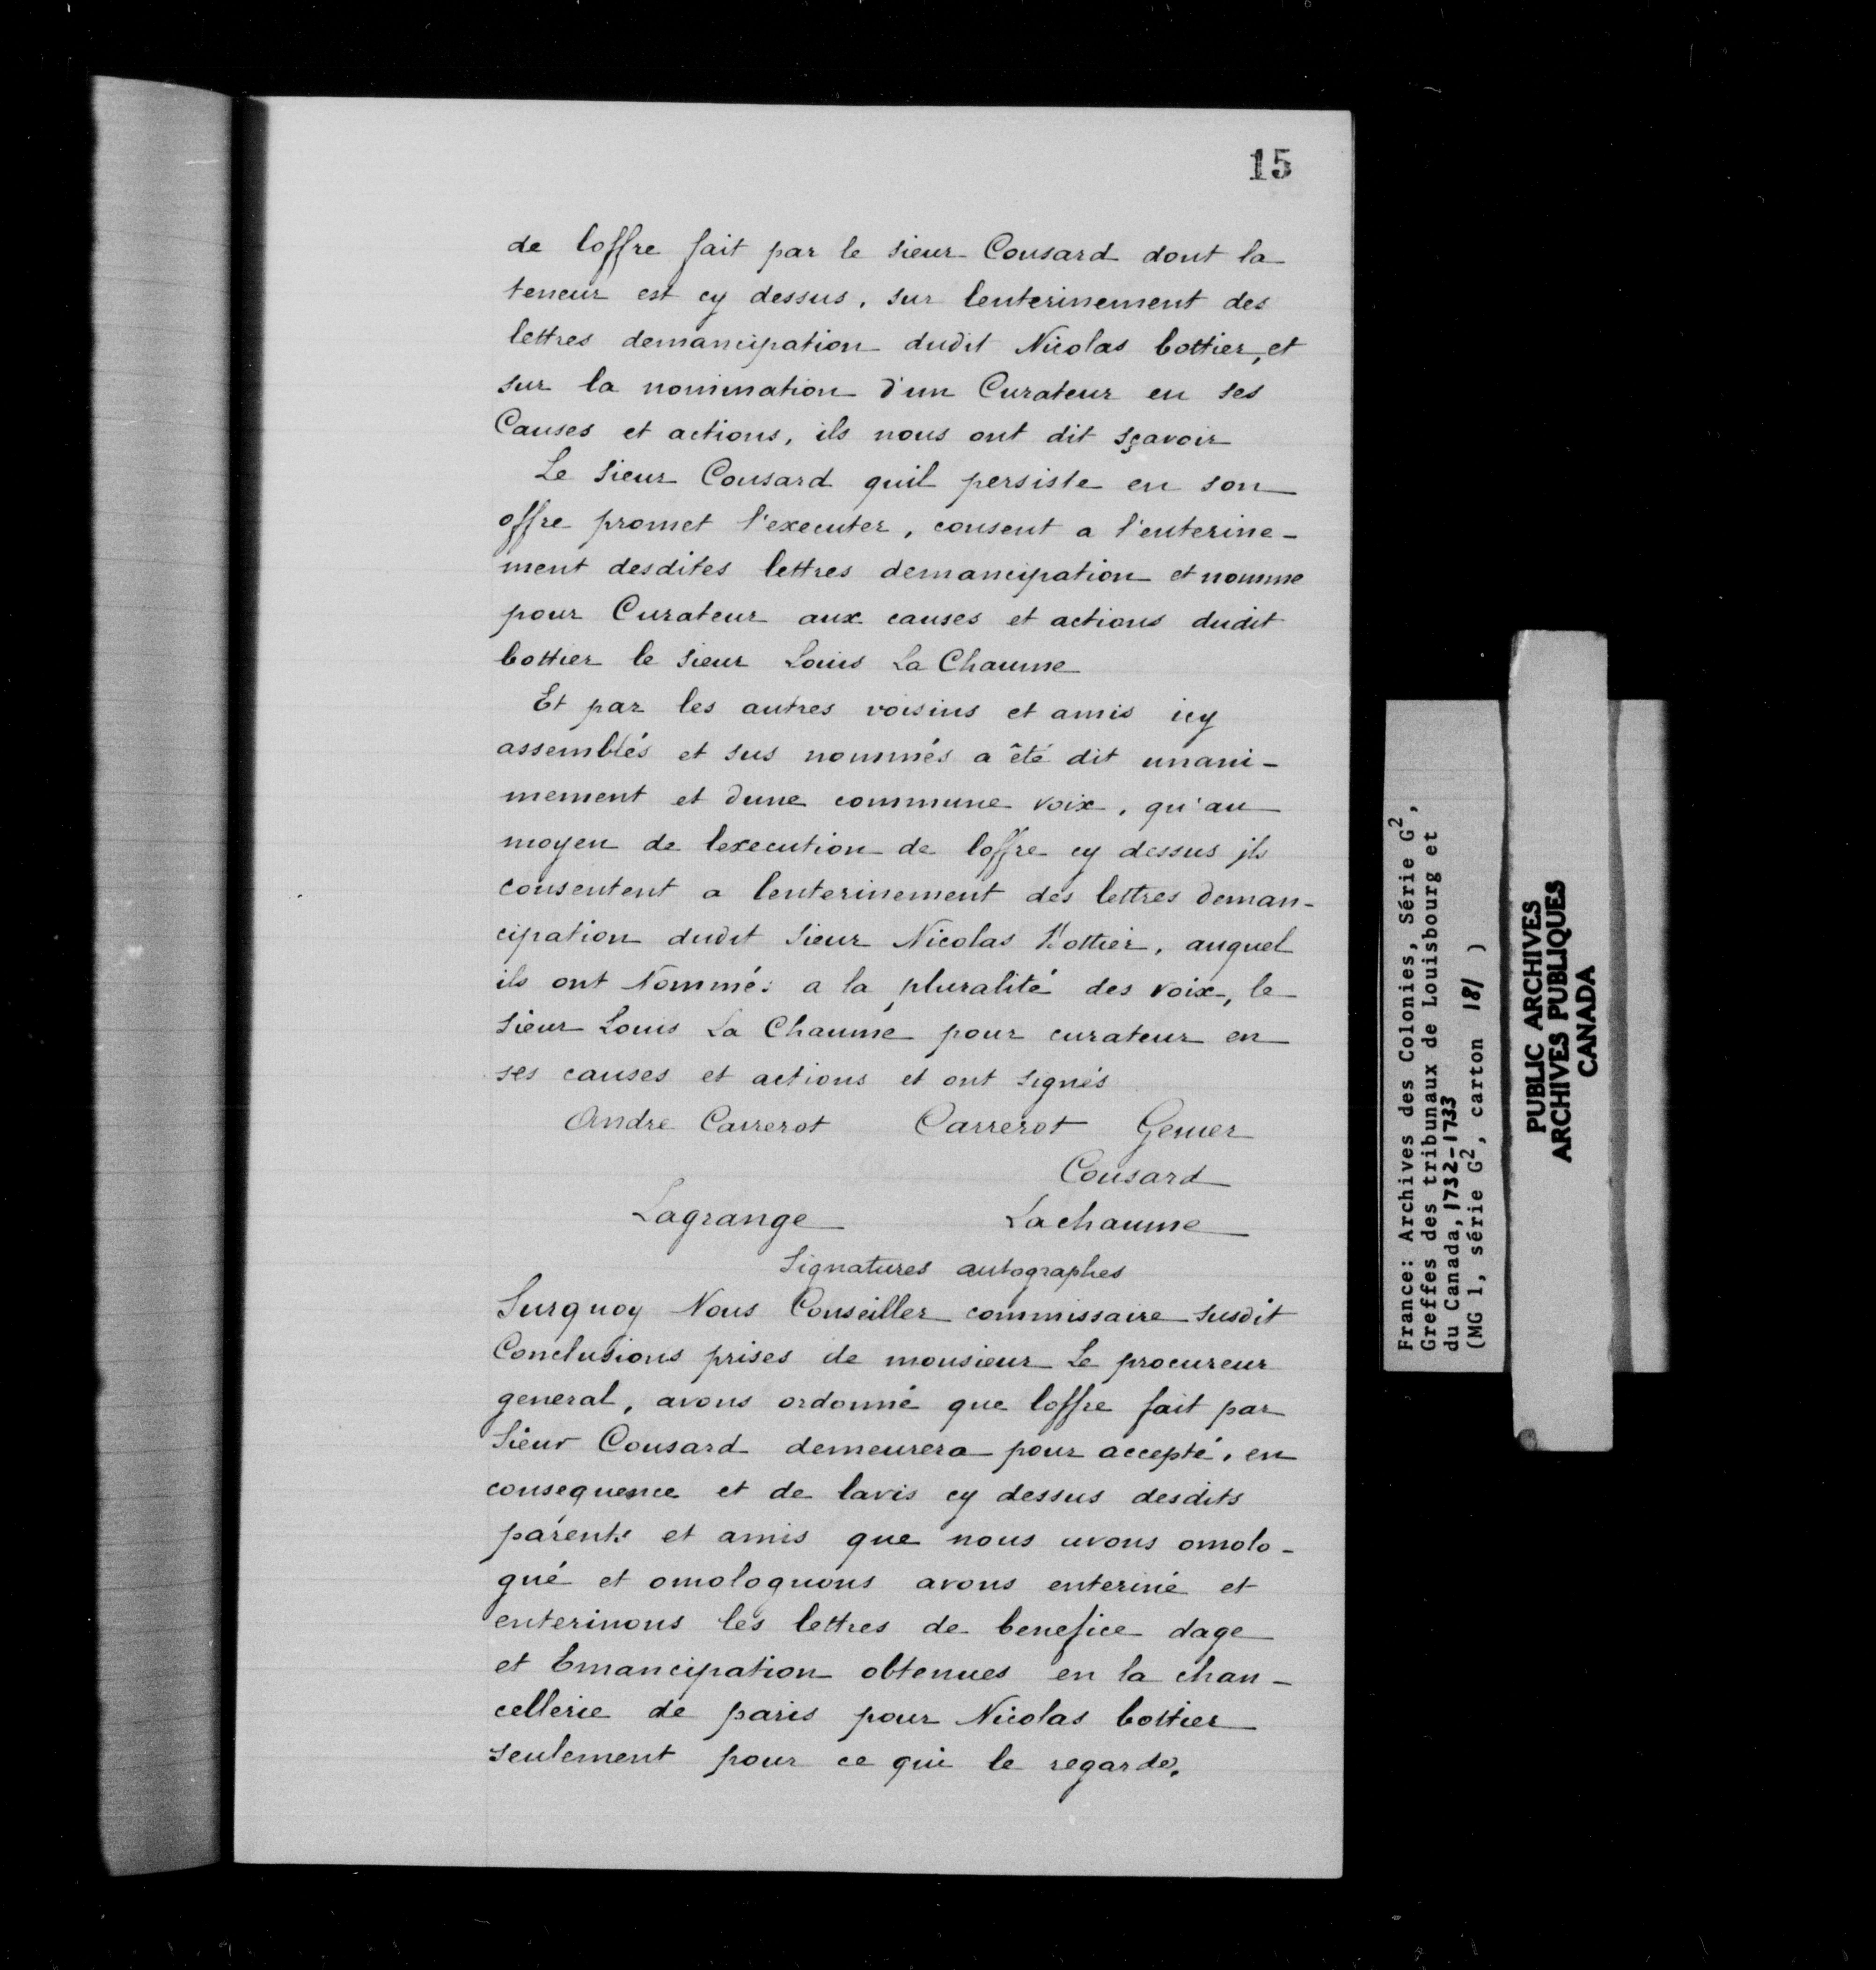 15
de loffre fait par le sieur Cousard dont la
teneur est cy dessus, sur lenterinement des
lettres demancipation dudit Nicolas bottier, et
sur la nomination d'un Curateur en ses
Causes et actions, ils nous ont dit sçavoir
Le Sieur Cousard quil persiste en son
offre promet l'executer, consent a l'enterine-
ment desdites lettres demancipation et nomme
pour Curateur aux causes et actions dudit
bottier le sieur Louis La Chaume
Et par les autres voisins et amis icy
assemblés et sus nommés a êté dit unani-
mement et dune commune voix, qu'au
moyen de lexecution de loffre cy dessus ils
consentent a lenterinement des lettres deman-
cipation dudit Sieur Nicolas Bottier, auquel
ils ont Nommés a la pluralité des voix, le
sieur Louis La Chaume pour curateur en
ses causes et actions et ont signés
Andre Carrerot Carrerot
Cousard
Lagrange Lachaume
Signatures autographes
Surquoy Nous Conseiller commissaire susdit
Conclusions prises de monsieur Le procureur
general, avons ordonné que loffre fait par
Sieur Cousard demeurera pour accepté, en
consequence et de lavis cy dessus desdits
parents et amis que nous avons omolo-
gué et omologuons avons enteriné et
enterinons les lettres de benefice dage
et Emancipation obtenues en la chan-
cellerie de paris pour Nicolas bottier
seulement pour ce qui le regarde,
France: Archives des Colonies, Série G2,
Greffes des tribunaux de Louisbourg et
du Canada, 1732-1733
(MG 1, série G2, carton 181 )
PUBLIC ARCHIVES
ARCHIVES PUBLIQUES
CANADA